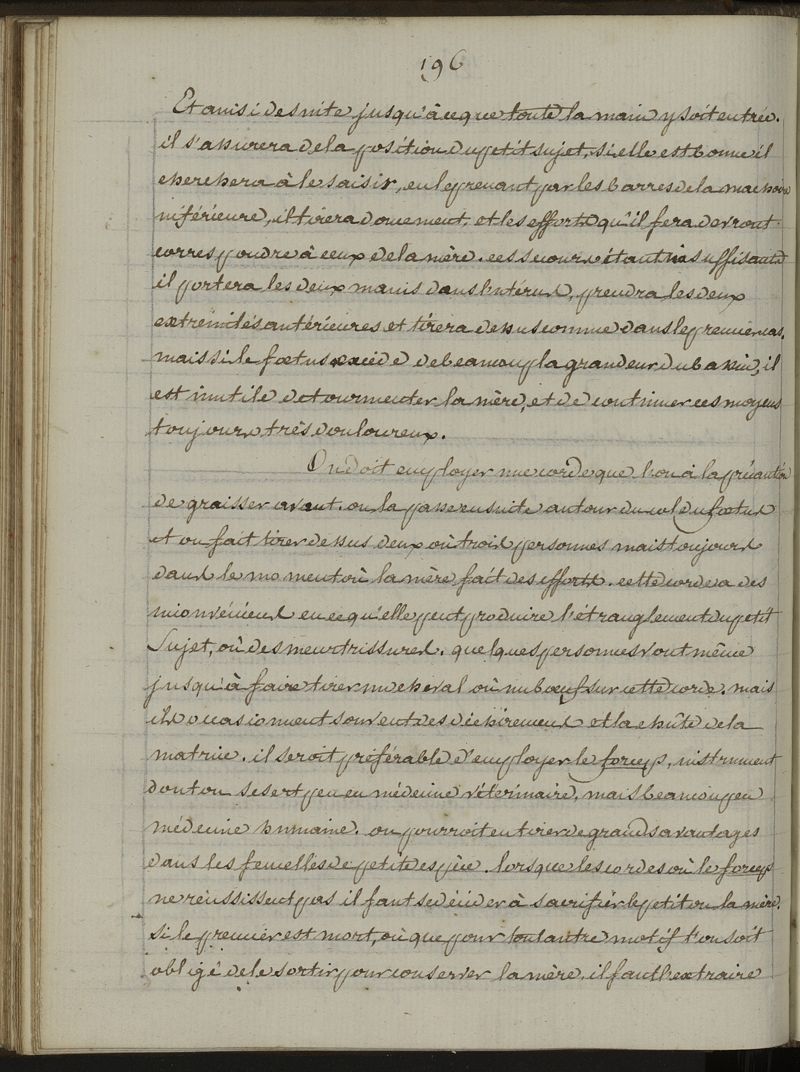 196
Et ainsi de suite jusqu'à ce que toute la main y soit entrée.
il s'assurera de la position du petit sujet, si elle est bonne il
cherchera à le saisir, en le prenant par les barres de la machoire
inférieure, il tirera doucement, et les efforts qu'il fera devront
correspondre à ceux de la mère. ces secours étant insuffisants
il portera les deux mains dans l'utérus, prendra les deux
extrémités antérieures et tirera dessus comme dans le premier cas.
mais si le fœtus excède de beaucoup la grandeur du bassin, il
est inutile de tourmenter la mère, et de continuer ces moyens
toujours très douloureux.
On doit employer une corde que l'on à la précaution
de graisser avant. on la passe ensuite autour du col du fœtus
et on fait tirer dessus deux où trois personnes mais toujours
dans le moment où la mère fait des efforts. cette corde a des
inconvénients en ce qu'elle peut produire l'étranglement du petit
Sujet, où des meurtrissures. quelques personnes vont même
jusqu'à faire tirer un cheval où un bœuf sur cette corde. mais
ils occasionnent souvent des déchirements et la chûte de la
matrice. il seroit préférable d'employer le forceps, instrument
dont on se sert peu en médecine vétérinaire, mais beaucoup en
médecine humaine. on pourroit en tirer de grands avantages
dans les femelles de petite espèce. lorsque les cordes où le forceps
ne réussissent pas il faut se décider à sacrifier le petit ou la mère.
si le premier est mort, où que pour tout autre motif l'on soit
obligé de le sortir pour conserver la mère, il faut l'extraire